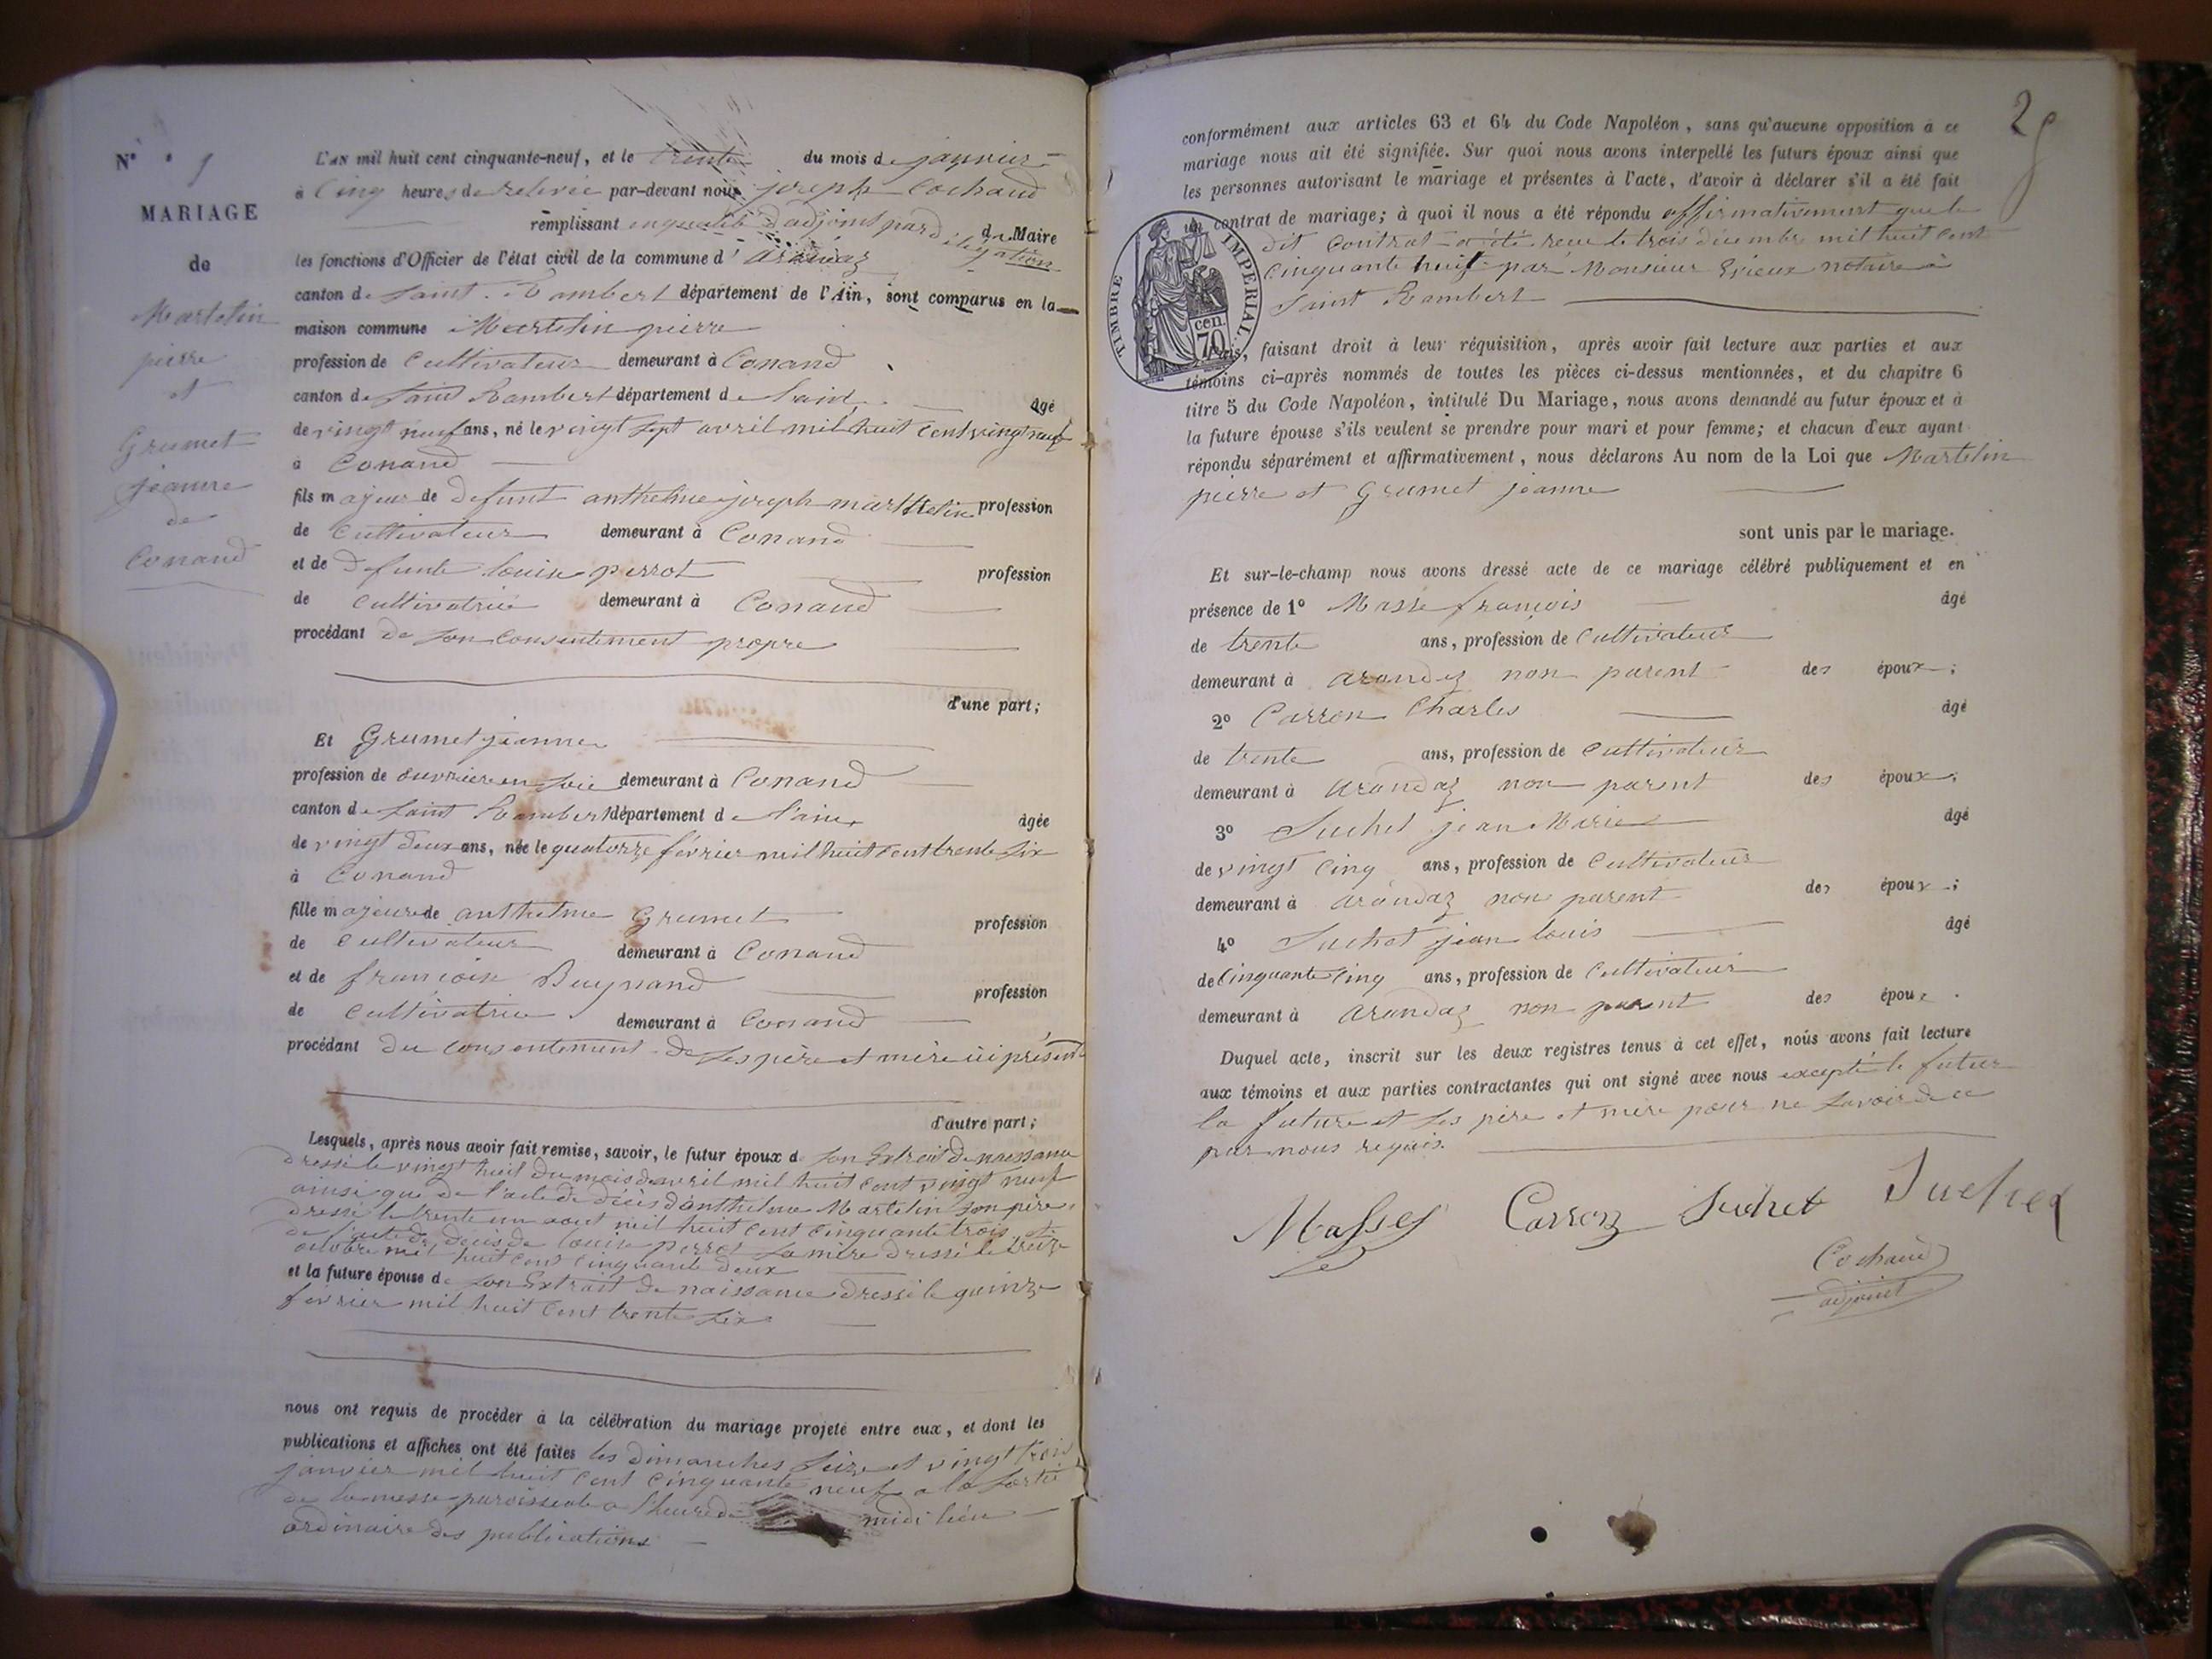 N° 1
MARIAGE
de
Martelin
pierre
et
Grumet
jeanne
de
Conand
L'AN mil huit cent cinquante-neuf, et le trente du mois de janvier
à Cinq heures de relevée par-devant nous joseph Cochaud
remplissant en qualité d'adjoint par délégation du Maire
les fonctions d'Officier de l'état civil de la commune d'arandaz
canton de Saint Rambert département de l'Ain, sont comparus en la
maison commune Martelin pierre
profession de Cultivateur demeurant à Conand
canton de Saint Rambert département de l'ain âgé
de vingt neuf ans, né le vingt sept avril mil huit cent vingt neuf
à Conand
fils majeur de defunt anthelme joseph marttelin profession
de Cultivateur demeurant à Conand
et de defunte louise perrot profession
de Cultivatrice demeurant à Conand
procédant de son consentement propre
d'une part;
Et Grumet jeanne
profession de ouvriere en soie demeurant à Conand
canton de Saint Rambert département de l'ain âgée
de vingt deux ans, née le quatorze février mil huit cent trente six
à Conand
fille majeure de anthelme Grumet profession
de Cultivateur demeurant à Conand
et de françoise Buynand profession
de Cultivatrice demeurant à Conand
procédant du consentement de ses père et mère ici présent
d'autre part;
Lesquels, après nous avoir fait remise, savoir, le futur époux de son Extrait de naissance
dressé le vingt huit du mois d'avril mil huit cent vingt neuf
ainsi que de l'acte de décès d'anthelme Martelin son père
dressé le trente un aout mil huit cent cinquante trois et
de l'acte de décés de louise perrot sa mère dressé le treize
octobre mil huit cent cinquante deux
et la future épouse de son Extrait de naissance dressé le quinze
fevrier mil huit Cent trente six
nous ont requis de procéder à la célébration du mariage projeté entre eux, et dont les
publications et affiches ont été faites les dimanches seize et vingt trois
janvier mil huit cent cinquante neuf a la sortie
de la messe paroissiale a l'heure de midi lieu
ordinaire des publications
29
conformément aux articles 63 et 64 du Code Napoléon, sans qu'aucune opposition à ce
mariage nous ait été signifiée. Sur quoi nous avons interpellé les futurs époux ainsi que
les personnes autorisant le mariage et présentes à l'acte, d'avoir à déclarer s'il a été fait
un contrat de mariage; à quoi il nous a été répondu affirmativement que le
dit Contrat a été recu le trois décembre mil huit Cent
Cinquante huit par Monsieur notaire à
Saint Rambert
TIMBRE IMPERIAL
70 cen.
faisant droit à leur réquisition, après avoir fait lecture aux parties et aux
témoins ci-après nommés de toutes les pièces ci-dessus mentionnées, et du chapitre 6
titre 5 du Code Napoléon, intitulé Du Mariage, nous avons demandé au futur époux et à
la future épouse s'ils veulent se prendre pour mari et pour femme; et chacun d'eux ayant
répondu séparément et affirmativement, nous déclarons Au nom de la Loi que Martelin
pierre et Grumet jeanne
sont unis par le mariage.
Et sur-le-champ nous avons dressé acte de ce mariage célébré publiquement et en
présence de 1° Masse françois âgé
de trente ans, profession de Cultivateur
demeurant à arandaz non parent des époux;
2° Carron Charles âgé
de trente ans, profession de Cultivateur
demeurant à arandaz non parent des époux;
3° Suchet jean Marie âgé
de vingt Cinq ans, profession de Cultivateur
demeurant à arandaz non parent des époux;
4° Suchet jean louis âgé
de Cinquante Cinq ans, profession de Cultivateur
demeurant à arandaz non parent des époux.
Duquel acte, inscrit sur les deux registres tenus à cet effet, nous avons fait lecture
aux témoins et aux parties contractantes qui ont signé avec nous excepté le futur
la future et ses père et mère pour ne savoir de ce
par nous requis.
Massej Carron Suchet Suchet
Cochaud
adjoint